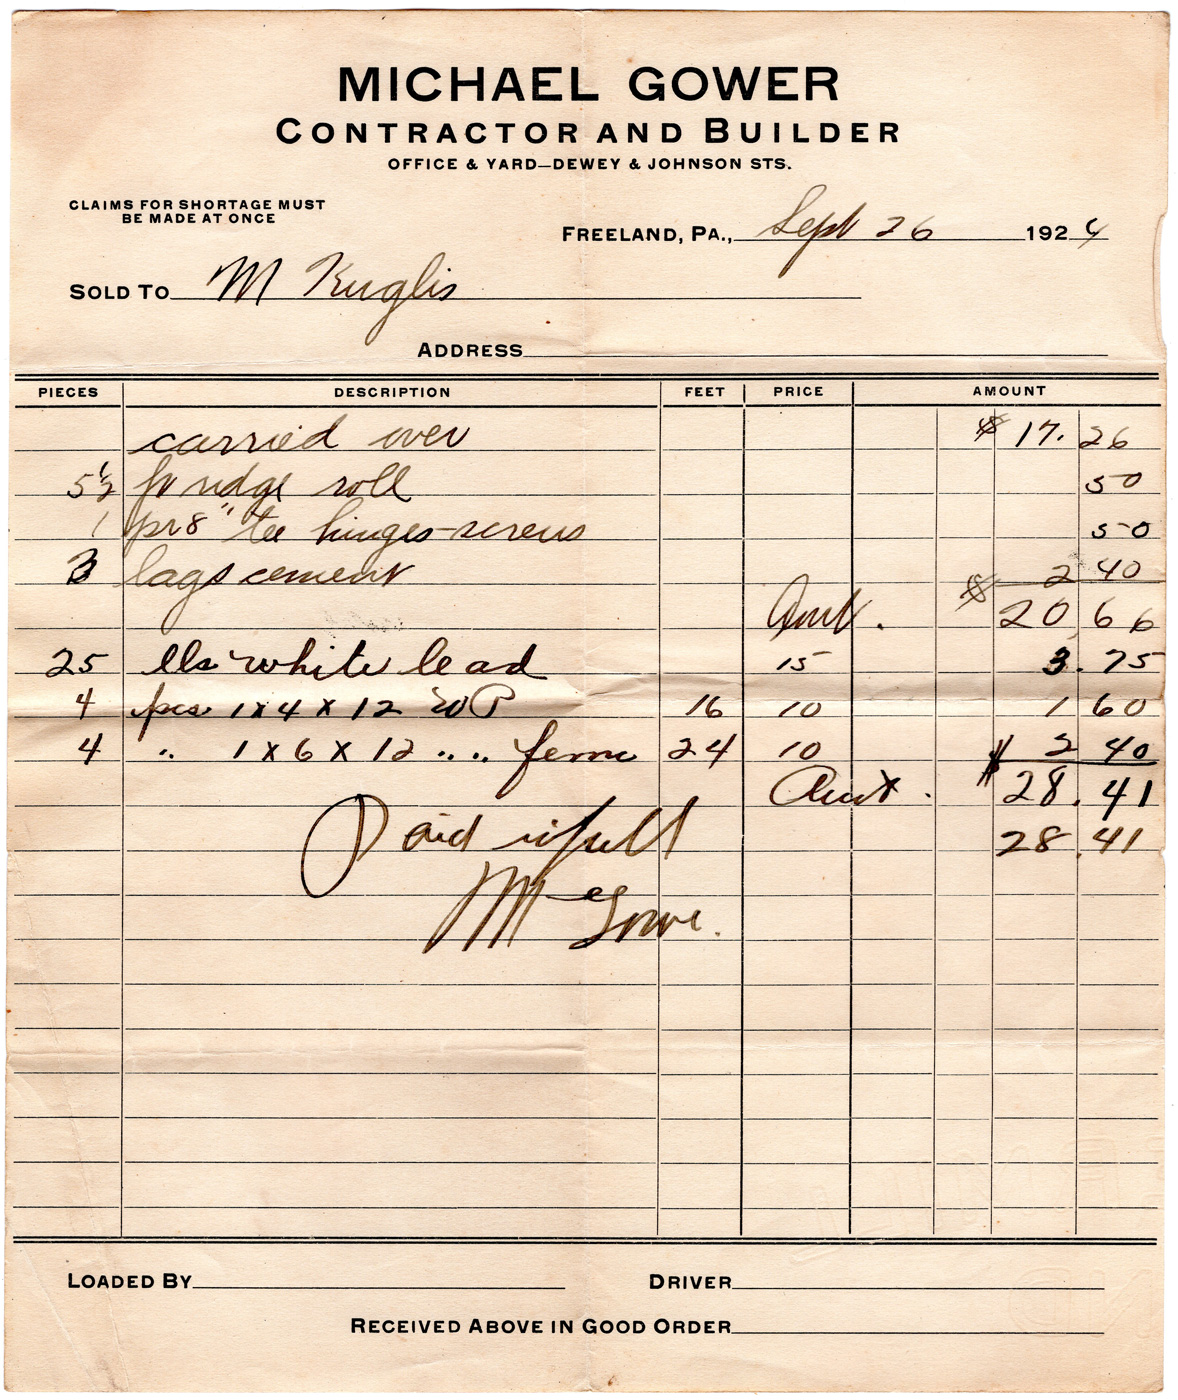 MICHAEL GOWER
CONTRACTOR AND BUILDER
OFFICE & YARD—DEWEY & JOHNSON STS.
CLAIMS FOR SHORTAGE MUST
BE MADE AT ONCE
FREELAND, PA., Sept 26 1924
SOLD TO M Kuglis
ADDRESS
PIECES DESCRIPTION FEET PRICE AMOUNT
carried over $ 17. 26
5 1/2 ft ridge roll 50
1 pr 8" tee hinges-screws 50
3 bags cement 2 40
Amt. $ 20 66
25 lbs white lead 15 3.75
4 pcs 1 x 4 x 12 WP 16 10 1 60
4 " 1 x 6 x 12 " " 24 10 2 40
Amt. $ 28.41
Paid in full 28.41
M Gower.
LOADED BY DRIVER
RECEIVED ABOVE IN GOOD ORDER